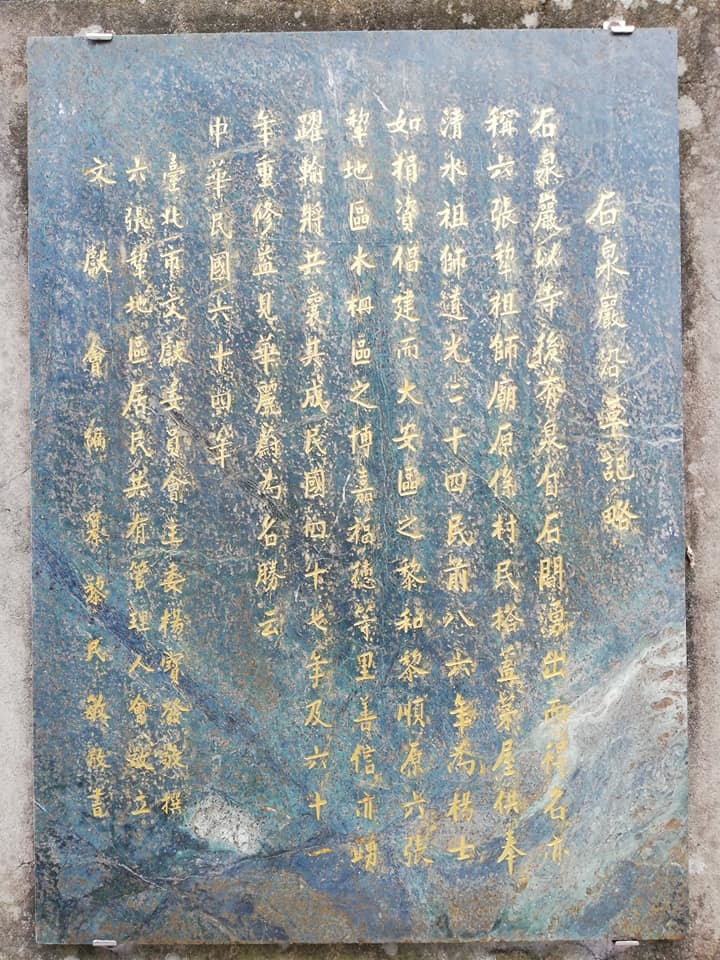 石泉巖沿革記略
石泉巖以寺後有泉自石間湧出而得名亦
稱六張犂祖師廟原係村民搭蓋茅屋供奉
清水祖師道光二十四民前八六年為楊士
如捐資倡建而大安區之黎和黎順原六張
犂地區木柵區之博嘉福德等里善信亦踴
躍輸將共襄其成民國四十七年及六十一
年重修益見華麗蔚為名勝云
中華民國六十四年
臺北市文獻委員會主委楊寶發敬撰
六張犂地區居民共有管理人會敬立
文獻會編纂黎民敬書